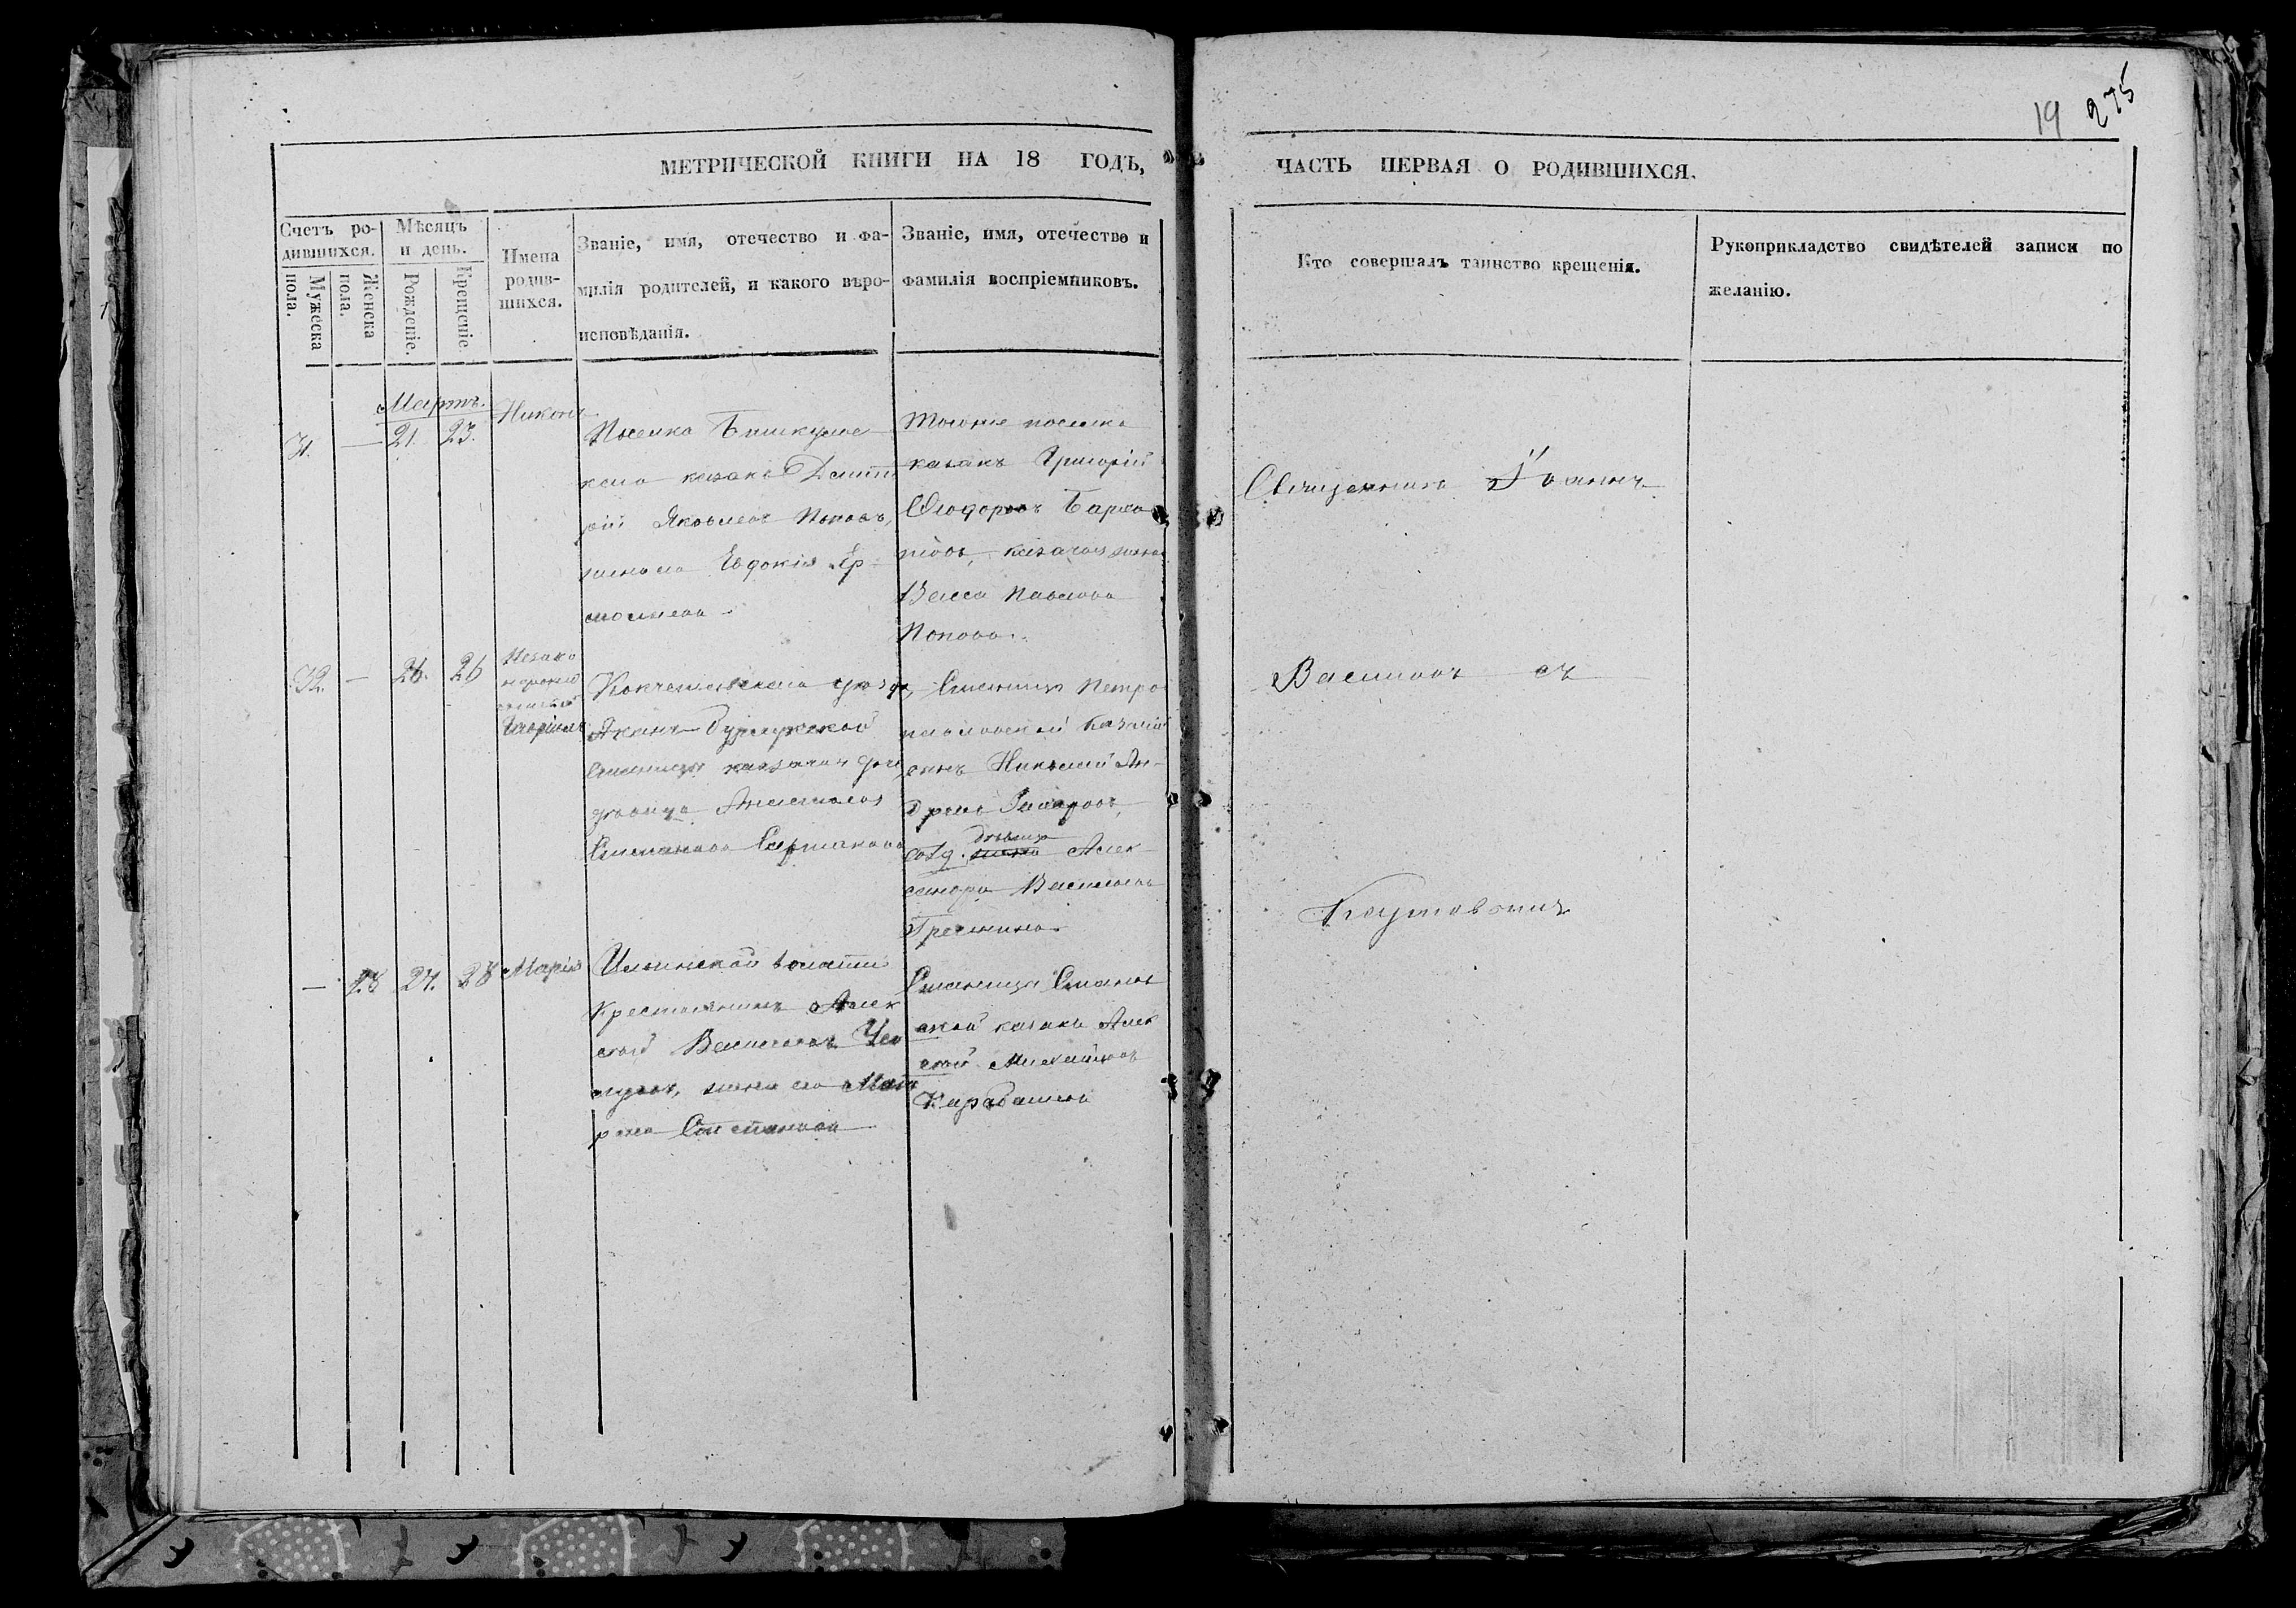 19 275
МЕТРИЧЕСКОЙ КНИГИ НА 18 ГОДЪ,
ЧАСТЬ ПЕРВАЯ О РОДИВШИХСЯ.
Счетъ ро-
дившихся.
Мужеска
пола.
Женска
пола.
Мѣсяцъ
и день.
Рожденіе.
Крещеніе.
Имена
родив-
шихся.
Званіе, имя, отечество и фа-
милія родителей, и какого вѣро-
исповѣданія.
Званіе, имя, отечество и
фамилія воспріемниковъ.
Кто совершалъ таинство крещенія.
Рукоприкладство свидѣтелей записи по
желанію.
Мартъ.
31. — 21. 23.
Никонъ
Поселка Бишкуль
скаго казакъ Дмит
рій Яковлевъ Поповъ,
жена его Евдокія Ер
молаева
Тогоже поселка
казакъ Григорій
Ѳеодоровъ
казачья жена
Васса Павлова
Попова.
Священникъ Іоаннъ
32. — 26. 26
Незако
норожд
Гавріилъ
Кокчетавскаго уѣзда,
Аканъ-Бурлукской
Станицы казачья
дѣвица Анастасія
Степанова
Станицы Петро
павловской казачій
сынъ Николай Ан-
дреевъ
дѣвица
Алек
сандра Васильева
Васильевъ съ
Коутовскихъ
— 28 27. 28 Марія
Ильинской волости
Крестьянинъ Алек
сѣй Васильевъ
жена его Мат
рена Степанова
Станицы Становъ
ской казакъ Алек
сѣй Михайловъ
Карабашевъ